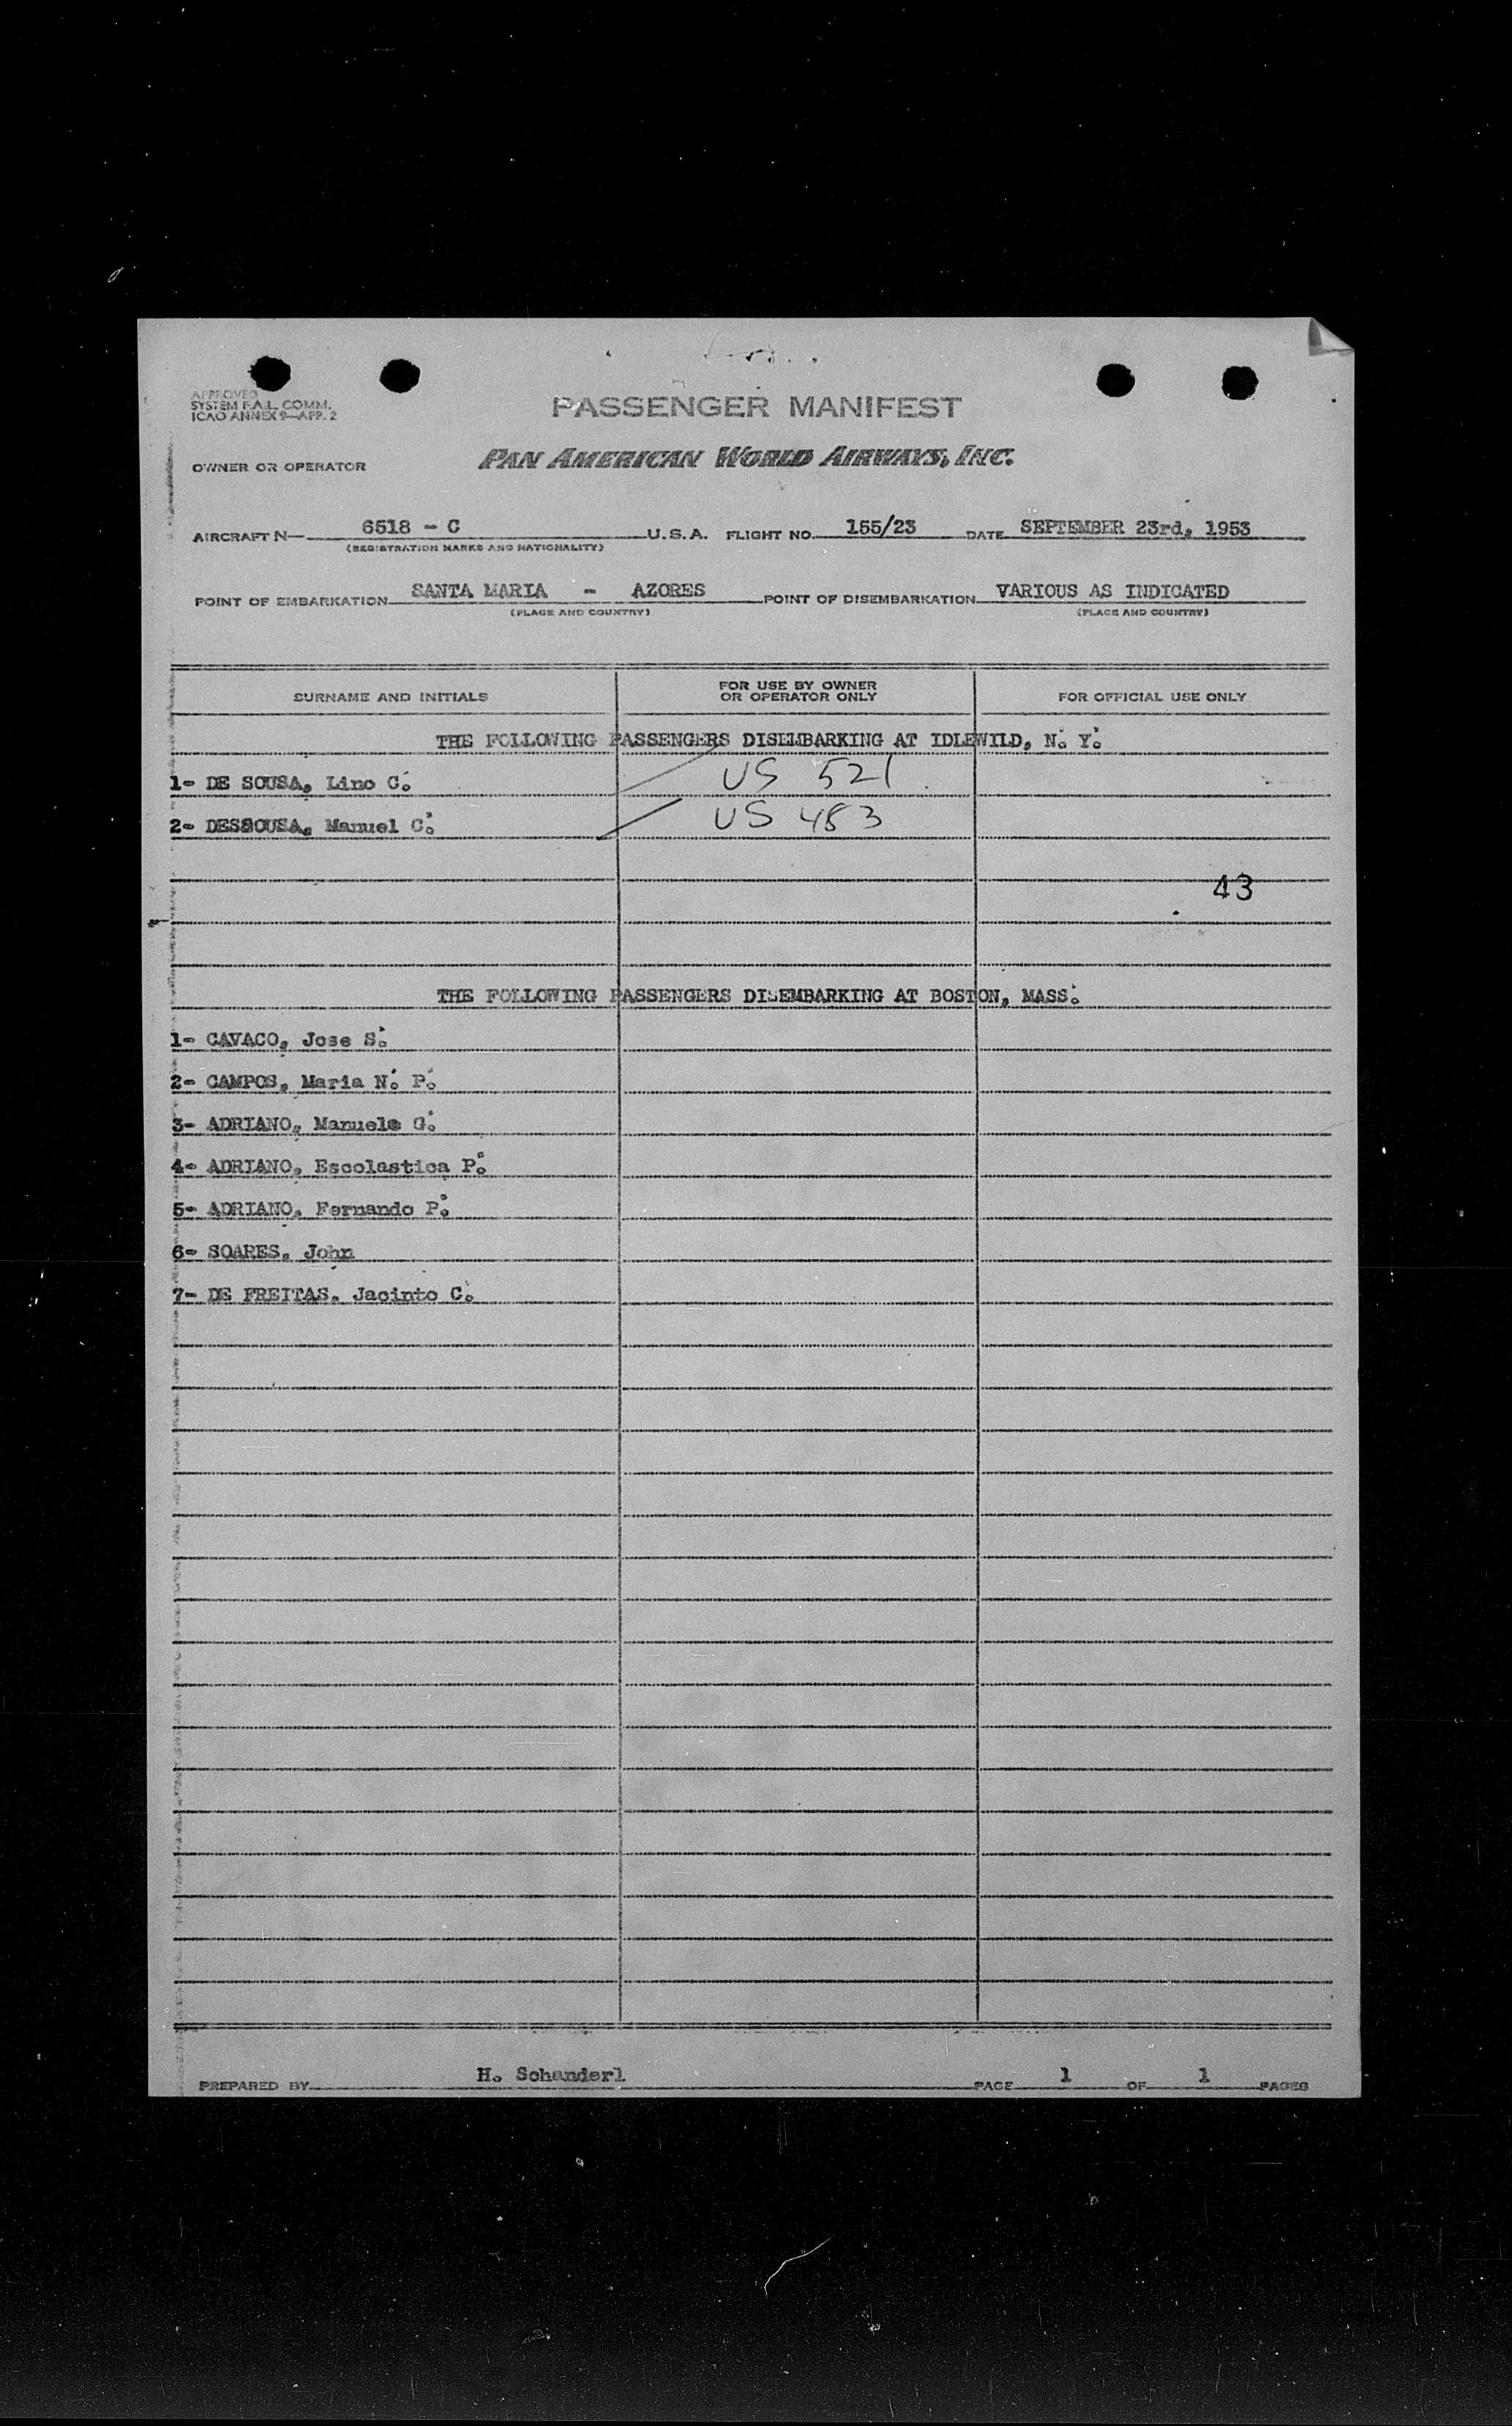 APPROVED
SYSTEM F.A.L. COMM.
ICAO ANNEX 9—APP. 2
PASSENGER MANIFEST
OWNER OR OPERATOR PAN AMERICAN WORLD AIRWAYS, INC.
AIRCRAFT N— 6518 - C U.S.A. FLIGHT NO. 155/23 DATE SEPTEMBER 23rd, 1953
(REGISTRATION MARKS AND NATIONALITY)
POINT OF EMBARKATION SANTA MARIA - AZORES POINT OF DISEMBARKATION VARIOUS AS INDICATED
(PLACE AND COUNTRY) (PLACE AND COUNTRY)
SURNAME AND INITIALS FOR USE BY OWNER OR OPERATOR ONLY FOR OFFICIAL USE ONLY
THE FOLLOWING PASSENGERS DISEMBARKING AT IDLEWILD, N. Y.
1- DE SOUSA, Lino C. US 521
2- DESSOUSA, Manuel C. US 483
43
THE FOLLOWING PASSENGERS DISEMBARKING AT BOSTON, MASS.
1- CAVACO, Jose S.
2- CAMPOS, Maria N. P.
3- ADRIANO, Manuel G.
4- ADRIANO, Escolastica P.
5- ADRIANO, Fernando P.
6- SOARES, John
7- DE FREITAS, Jacinto C.
PREPARED BY H. Schanderl PAGE 1 OF 1 PAGES